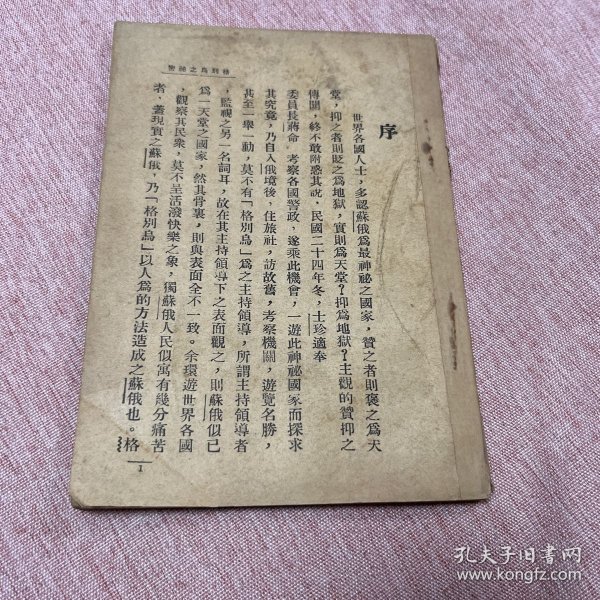 序
世界各國人士，多認蘇俄爲最神祕之國家，贊之者則褒之爲天
堂，抑之者則貶之爲地獄，實則爲天堂？抑爲地獄？主觀的贊抑之
傳聞，終不敢附惑其說，民國二十四年冬，士珍適奉
委員長蔣命。考察各國警政，遂乘此機會，一遊此神祕國家而探求
其究竟，乃自入俄境後，住旅社，訪故舊，考察機關，遊覽名勝，
其至一舉一動，莫不有「格別烏」爲之主持領導，所謂主持領導者
，監視之另一名詞耳，故在其主持領導下之表面觀之，則蘇俄似已
爲一天堂之國家，然其骨裏，則與表面全不一致。余環遊世界各國
，觀察其民衆，莫不呈活潑快樂之象，獨蘇俄人民似寓有幾分痛苦
者，蓋現實之蘇俄，乃「格別烏」以人爲的方法造成之蘇俄也。格
格別烏之祕密
1
孔夫子旧书网
www.kongfz.com